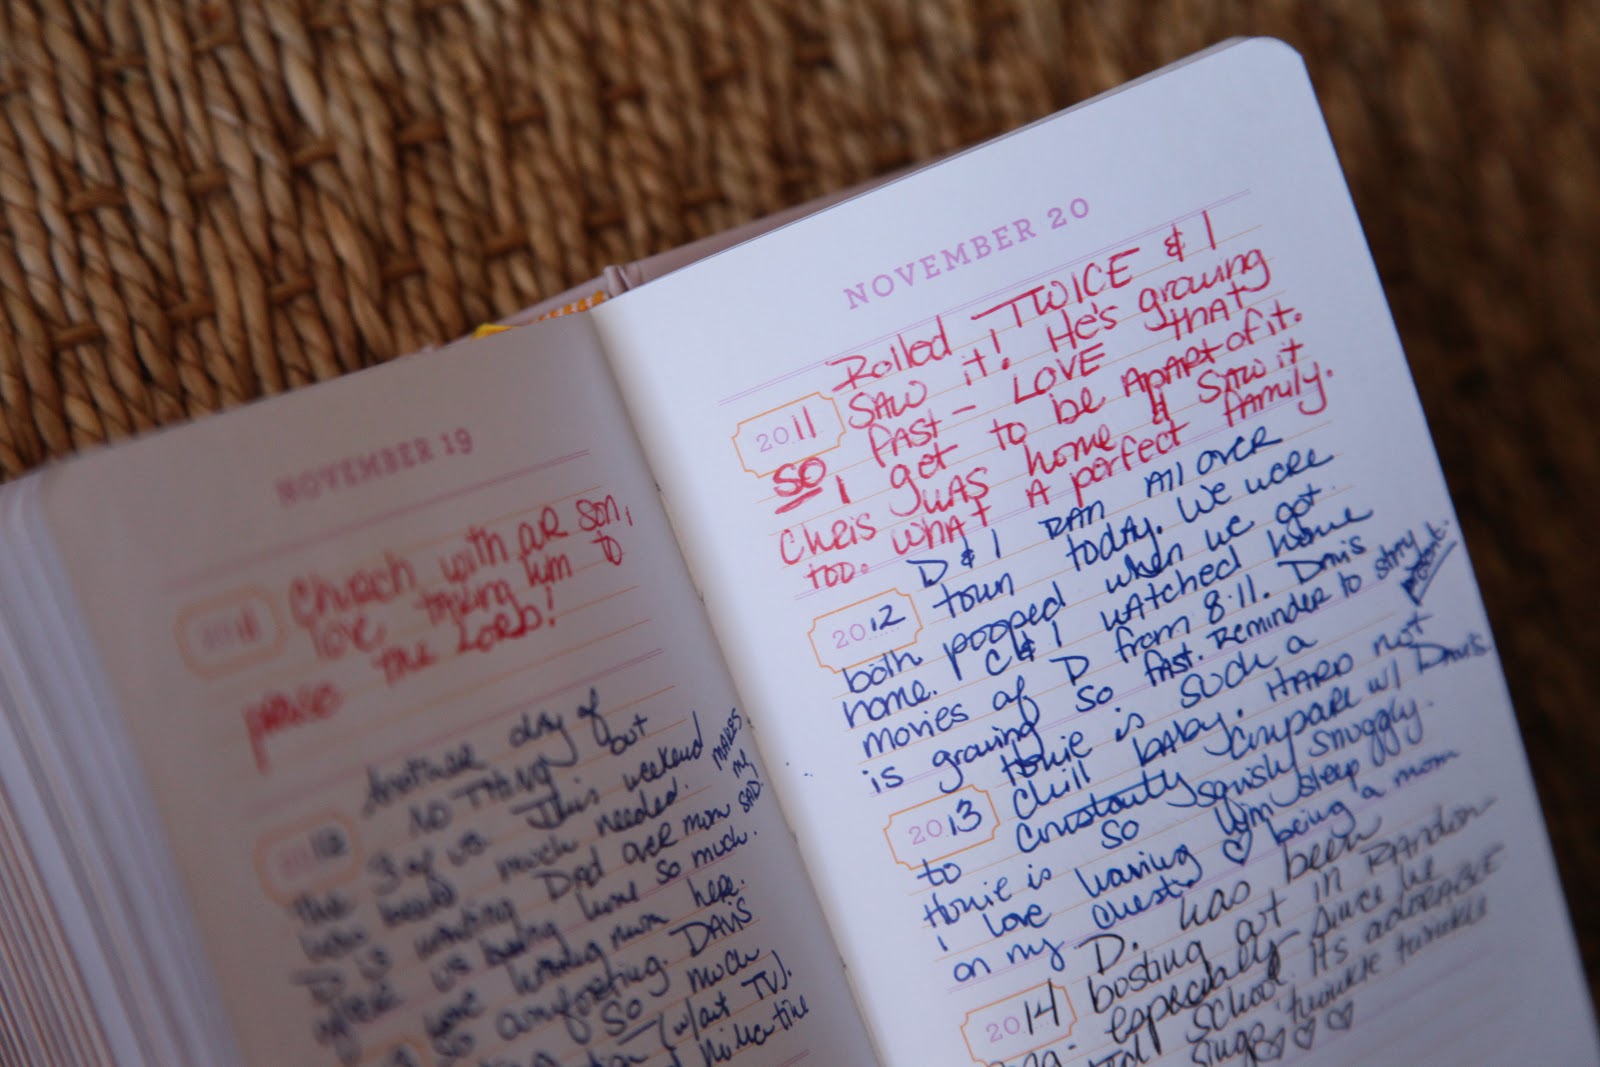 NOVEMBER 19
2011
Church with our son,
love taking him to
praise the LORD!
2012
Another day of
NOTHING but
the 3 of us. This weekend
has been much needed. MAKES
D is wanting Dad over mom me
after us being home so much. SAD.
Love having mom here.
so comforting. DAVIS
SO much
(w/out TV).
NOVEMBER 20
2011
Rolled TWICE & I
SAW it! He's growing
SO FAST - LOVE THAT
I get to be APART of it.
Chris WAS home & SAW it
too. WHAT A perfect FAMILY.
2012
D & I RAN All over
town today. We were
both pooped when we got
home. C & I WATCHED home
movies of D from 8.11. DAVIS
is growing SO FAST. Reminder to stay
present.
2013
Howie is such a
chill BABY. HARD not
to constantly compare w/ DAVIS.
Howie is so squishy snuggly.
I love having him sleep
on my chest. ♡ being a mom
2014
D. has been
busting out in RANdom
especially since he
school. It's ADORABLE
sings twinkle twinkle
♡♡♡